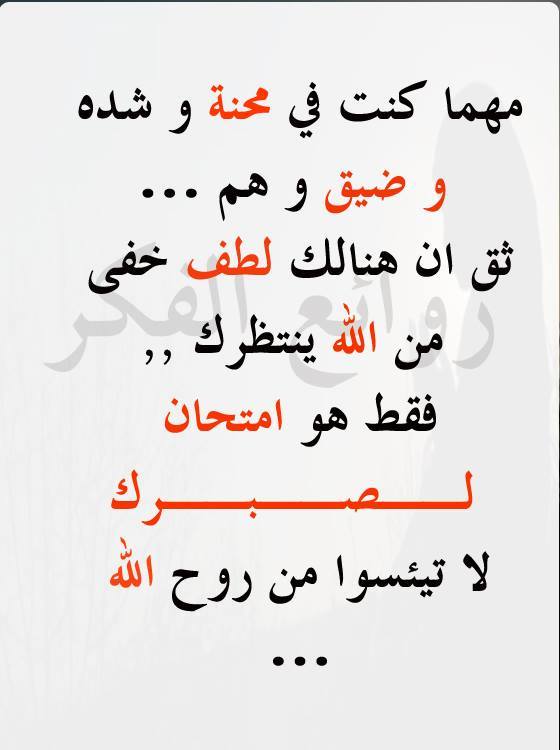 مهما كنت في محنة و شده
و ضيق و هم ...
ثق ان هنالك لطف خفى
من الله ينتظرك ,,
فقط هو امتحان
لـــصـــبـــرك
لا تيئسوا من روح الله
...
روائع الفكر